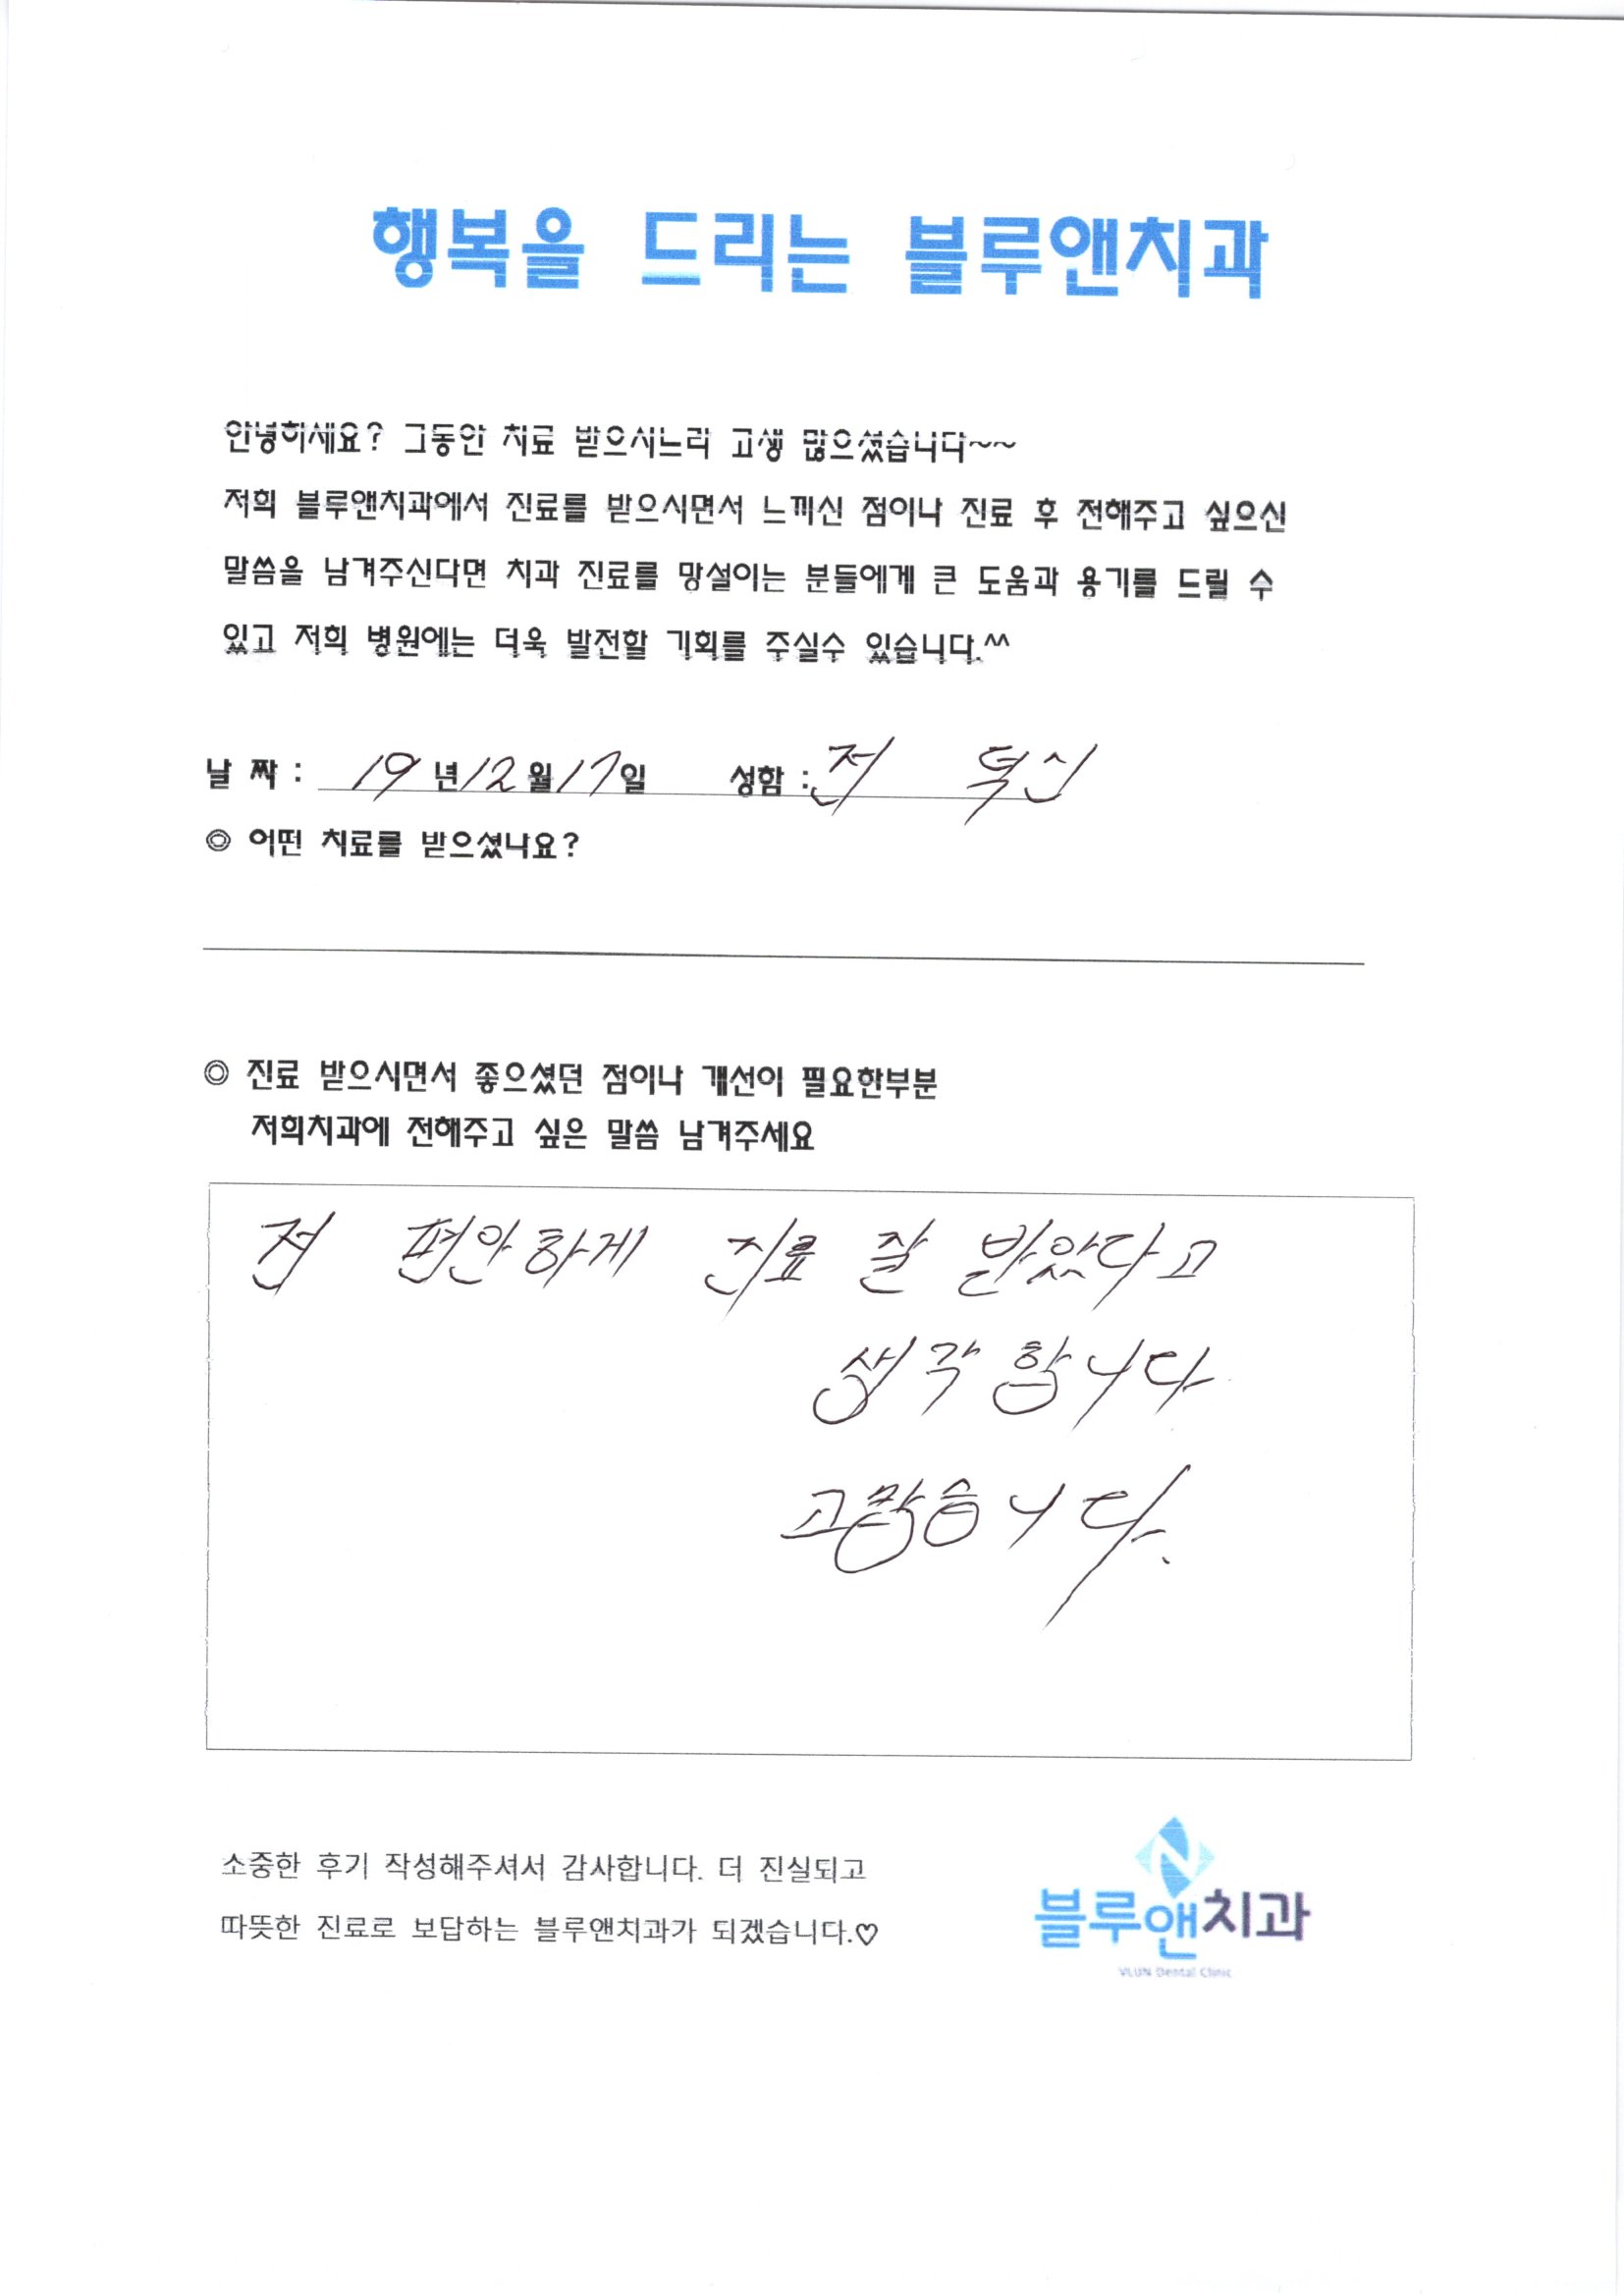 행복을 드리는 블루앤치과
안녕하세요? 그동안 치료 받으시느라 고생 많으셨습니다~~
저희 블루앤치과에서 진료를 받으시면서 느끼신 점이나 진료 후 전해주고 싶으신
말씀을 남겨주신다면 치과 진료를 망설이는 분들에게 큰 도움과 용기를 드릴 수
있고 저희 병원에는 더욱 발전할 기회를 주실수 있습니다.^^
날 짜 : 19 년 12 월 17 일 성함 : 전 덕신
◎ 어떤 치료를 받으셨나요?
◎ 진료 받으시면서 좋으셨던 점이나 개선이 필요한부분
저희치과에 전해주고 싶은 말씀 남겨주세요
전 편안하게 진료 잘 받았다고
생각합니다
고맙습니다.
소중한 후기 작성해주셔서 감사합니다. 더 진실되고
따뜻한 진료로 보답하는 블루앤치과가 되겠습니다.♡
블루앤치과
VLUN Dental Clinic